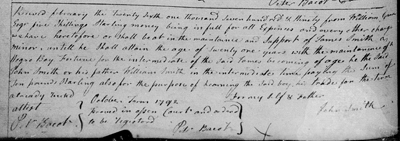 Peter Bacot
Received February the twenty sixth one thousand seven hundred & Ninety from William
Esqr five Shillings Sterling money being in full for all Expences and every other charge
we have heretofore or shall be at in the maintenance and Support of James Smith, a
minor, untill he Shall attain the age of twenty one years, with the maintainance of
Negro Boy Fortune for the intermediate of the said James becoming of age he the Said
John Smith or his father William Smith in the intermediate time paying the Sum of
Ten pounds Sterling also for the purpose of learning the said boy the trade for the time
already mentd
attest
Pet. Bacot
October Term 1792
proved in open Court and ordered
to be registered
Pet. Bacot
& Father
John Smith